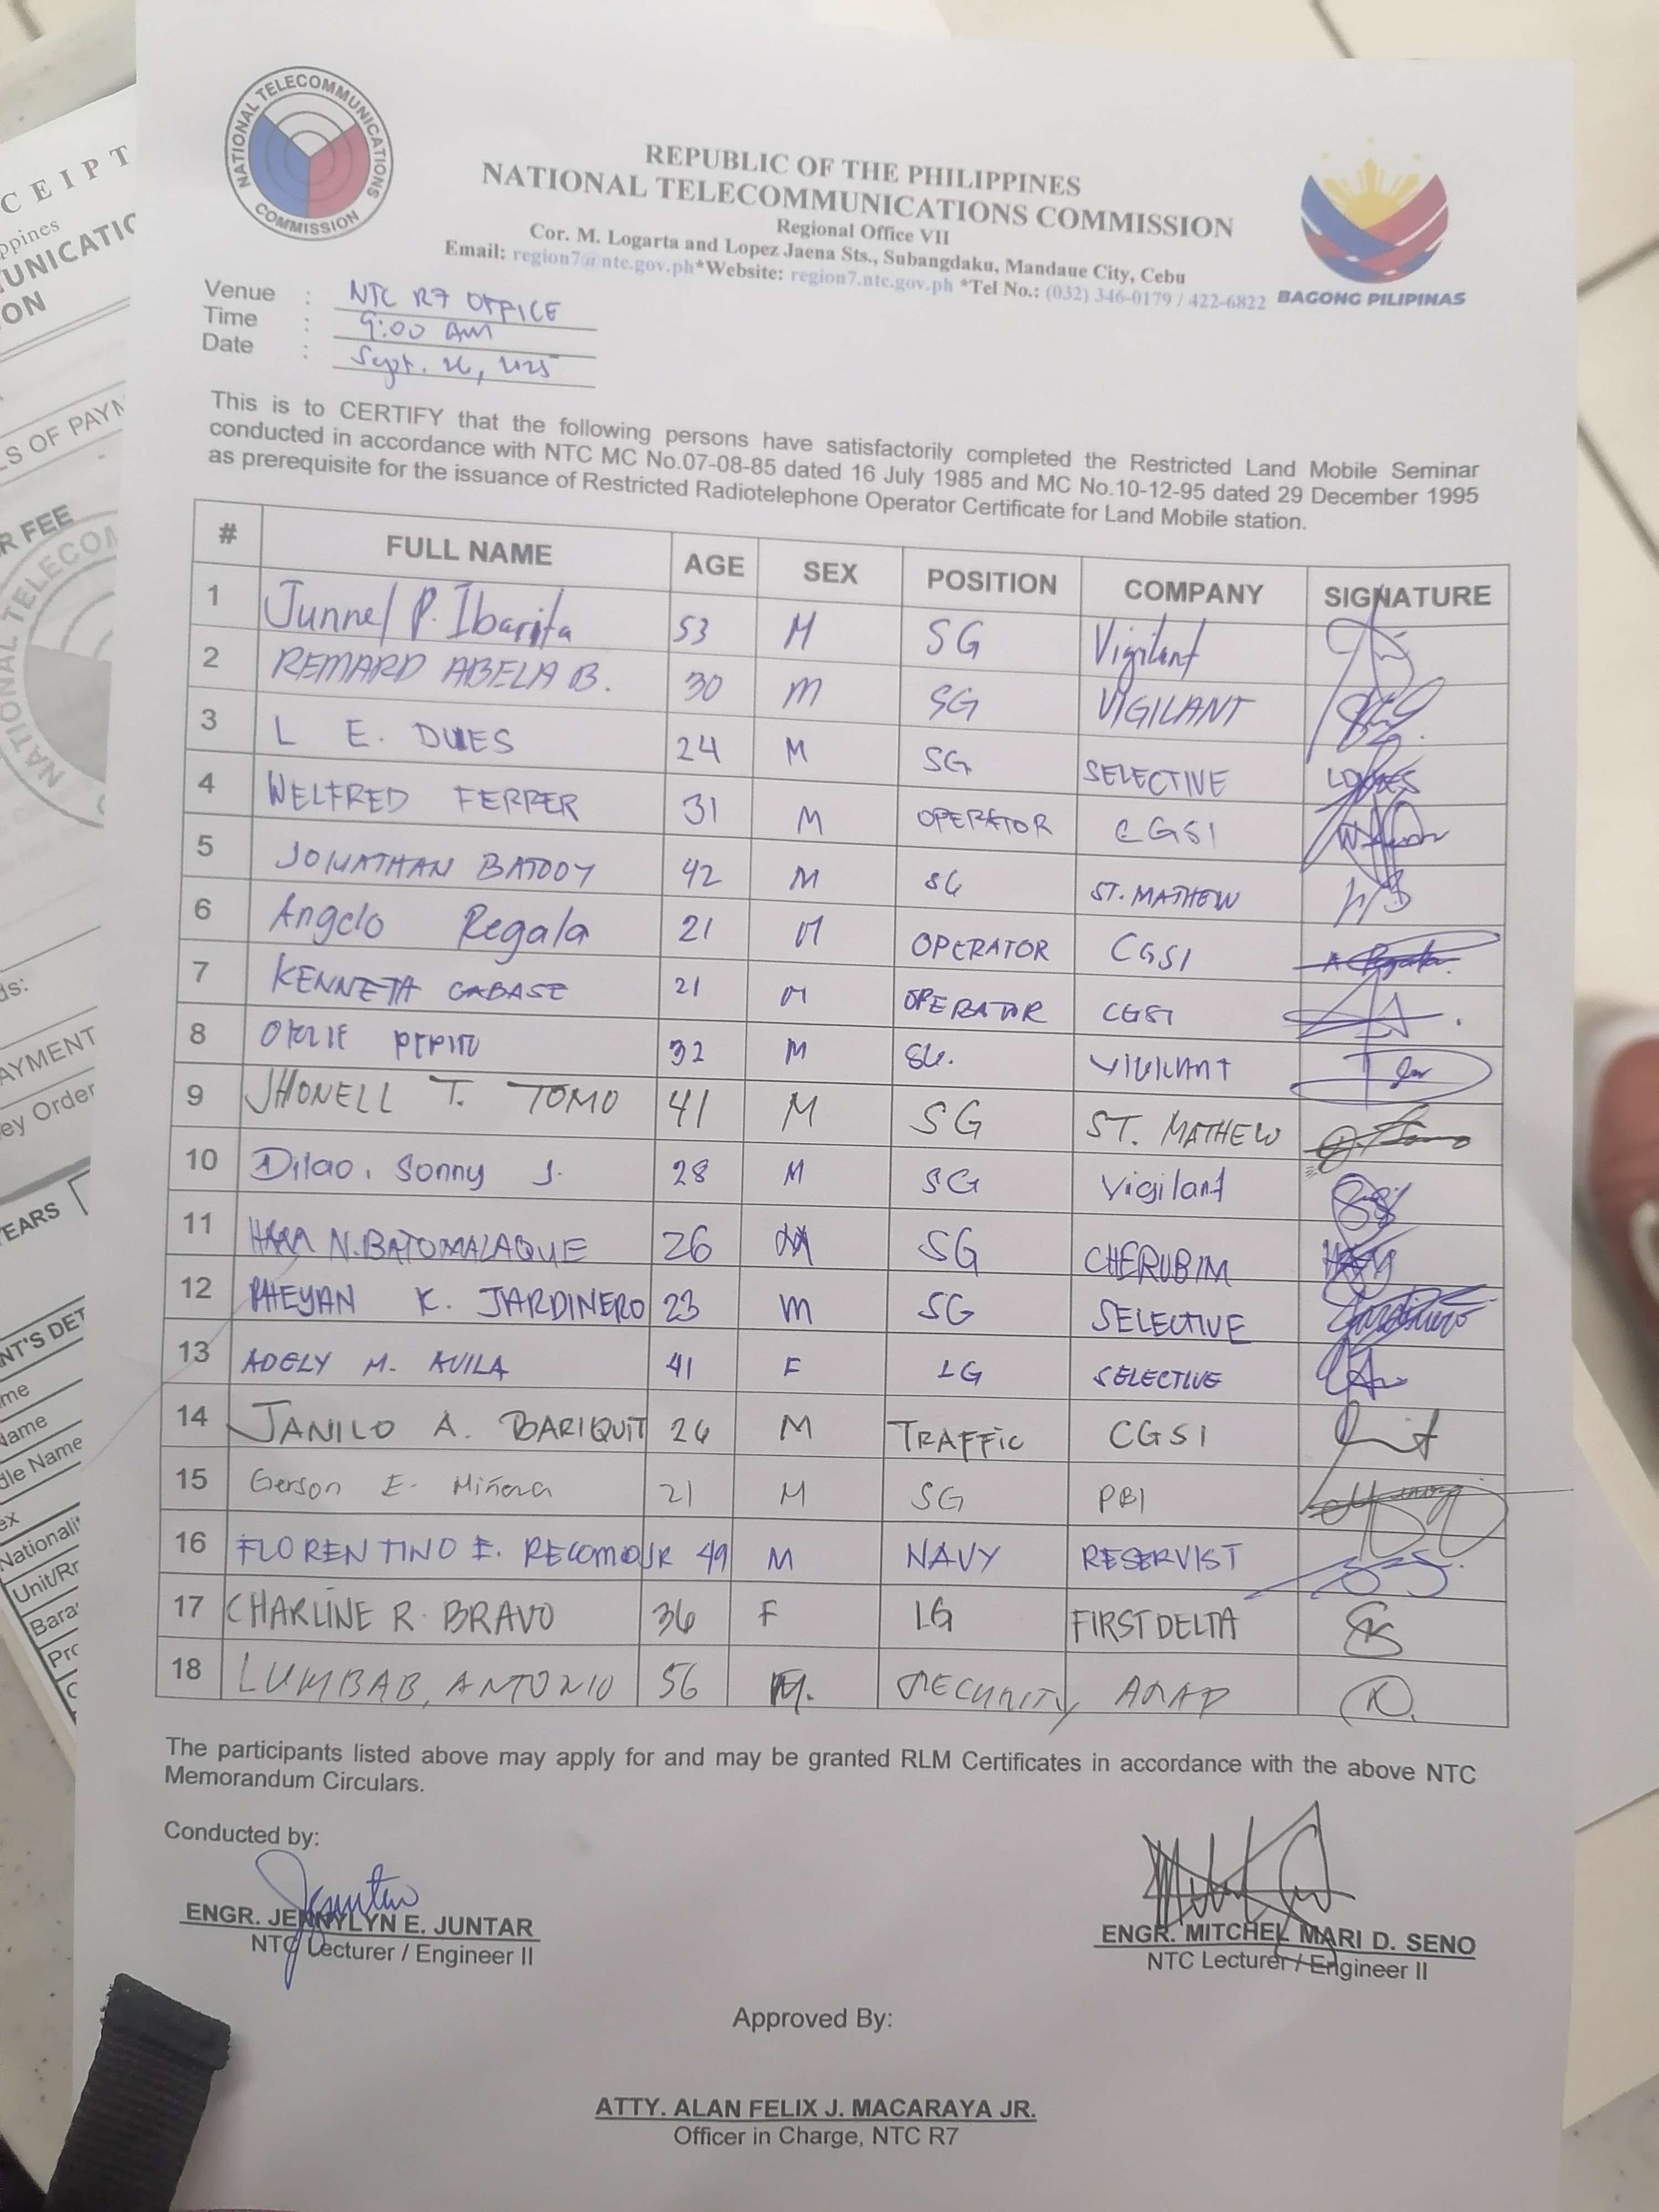 NATIONAL TELECOMMUNICATIONS COMMISSION
REPUBLIC OF THE PHILIPPINES
NATIONAL TELECOMMUNICATIONS COMMISSION
Regional Office VII
Cor. M. Logarta and Lopez Jaena Sts., Subangdaku, Mandaue City, Cebu
Email: region7@ntc.gov.ph*Website: region7.ntc.gov.ph *Tel No.: (032) 346-0179 / 422-6822
BAGONG PILIPINAS
Venue : NTC R7 OFFICE
Time : 9:00 AM
Date : Sept. 26, 2025
This is to CERTIFY that the following persons have satisfactorily completed the Restricted Land Mobile Seminar
conducted in accordance with NTC MC No.07-08-85 dated 16 July 1985 and MC No.10-12-95 dated 29 December 1995
as prerequisite for the issuance of Restricted Radiotelephone Operator Certificate for Land Mobile station.
# FULL NAME AGE SEX POSITION COMPANY SIGNATURE
1 Junnel P. Ibarita 53 M SG Vigilant
2 REMARD ABELA B. 30 M SG VIGILANT
3 L E. DUES 24 M SG SELECTIVE
4 WELFRED FERRER 31 M OPERATOR CGSI
5 JONATHAN BATOOY 42 M SG ST. MATHEW
6 Angelo Regala 21 M OPERATOR CGSI
7 KENNETH CABASE 21 M OPERATOR CGSI
8 PEPITO 32 M SG. VIGILANT
9 JHONELL T. TOMO 41 M SG ST. MATHEW
10 Dilao, Sonny J. 28 M SG Vigilant
11 N. BATOMALAQUE 26 M SG CHERUBIM
12 RHEYAN K. JARDINERO 23 M SG SELECTIVE
13 ADELY M. AVILA 41 F LG SELECTIVE
14 JANILO A. BARIQUIT 26 M TRAFFIC CGSI
15 Gerson E. Miñoza 21 M SG PBI
16 FLORENTINO E. RECOMO JR 49 M NAVY RESERVIST
17 CHARLINE R. BRAVO 36 F LG FIRST DELTA
18 LUMBAB, ANTONIO 56 M. SECURITY
The participants listed above may apply for and may be granted RLM Certificates in accordance with the above NTC
Memorandum Circulars.
Conducted by:
ENGR. JENNYLYN E. JUNTAR
NTC Lecturer / Engineer II
ENGR. MITCHEL MARI D. SENO
NTC Lecturer / Engineer II
Approved By:
ATTY. ALAN FELIX J. MACARAYA JR.
Officer in Charge, NTC R7